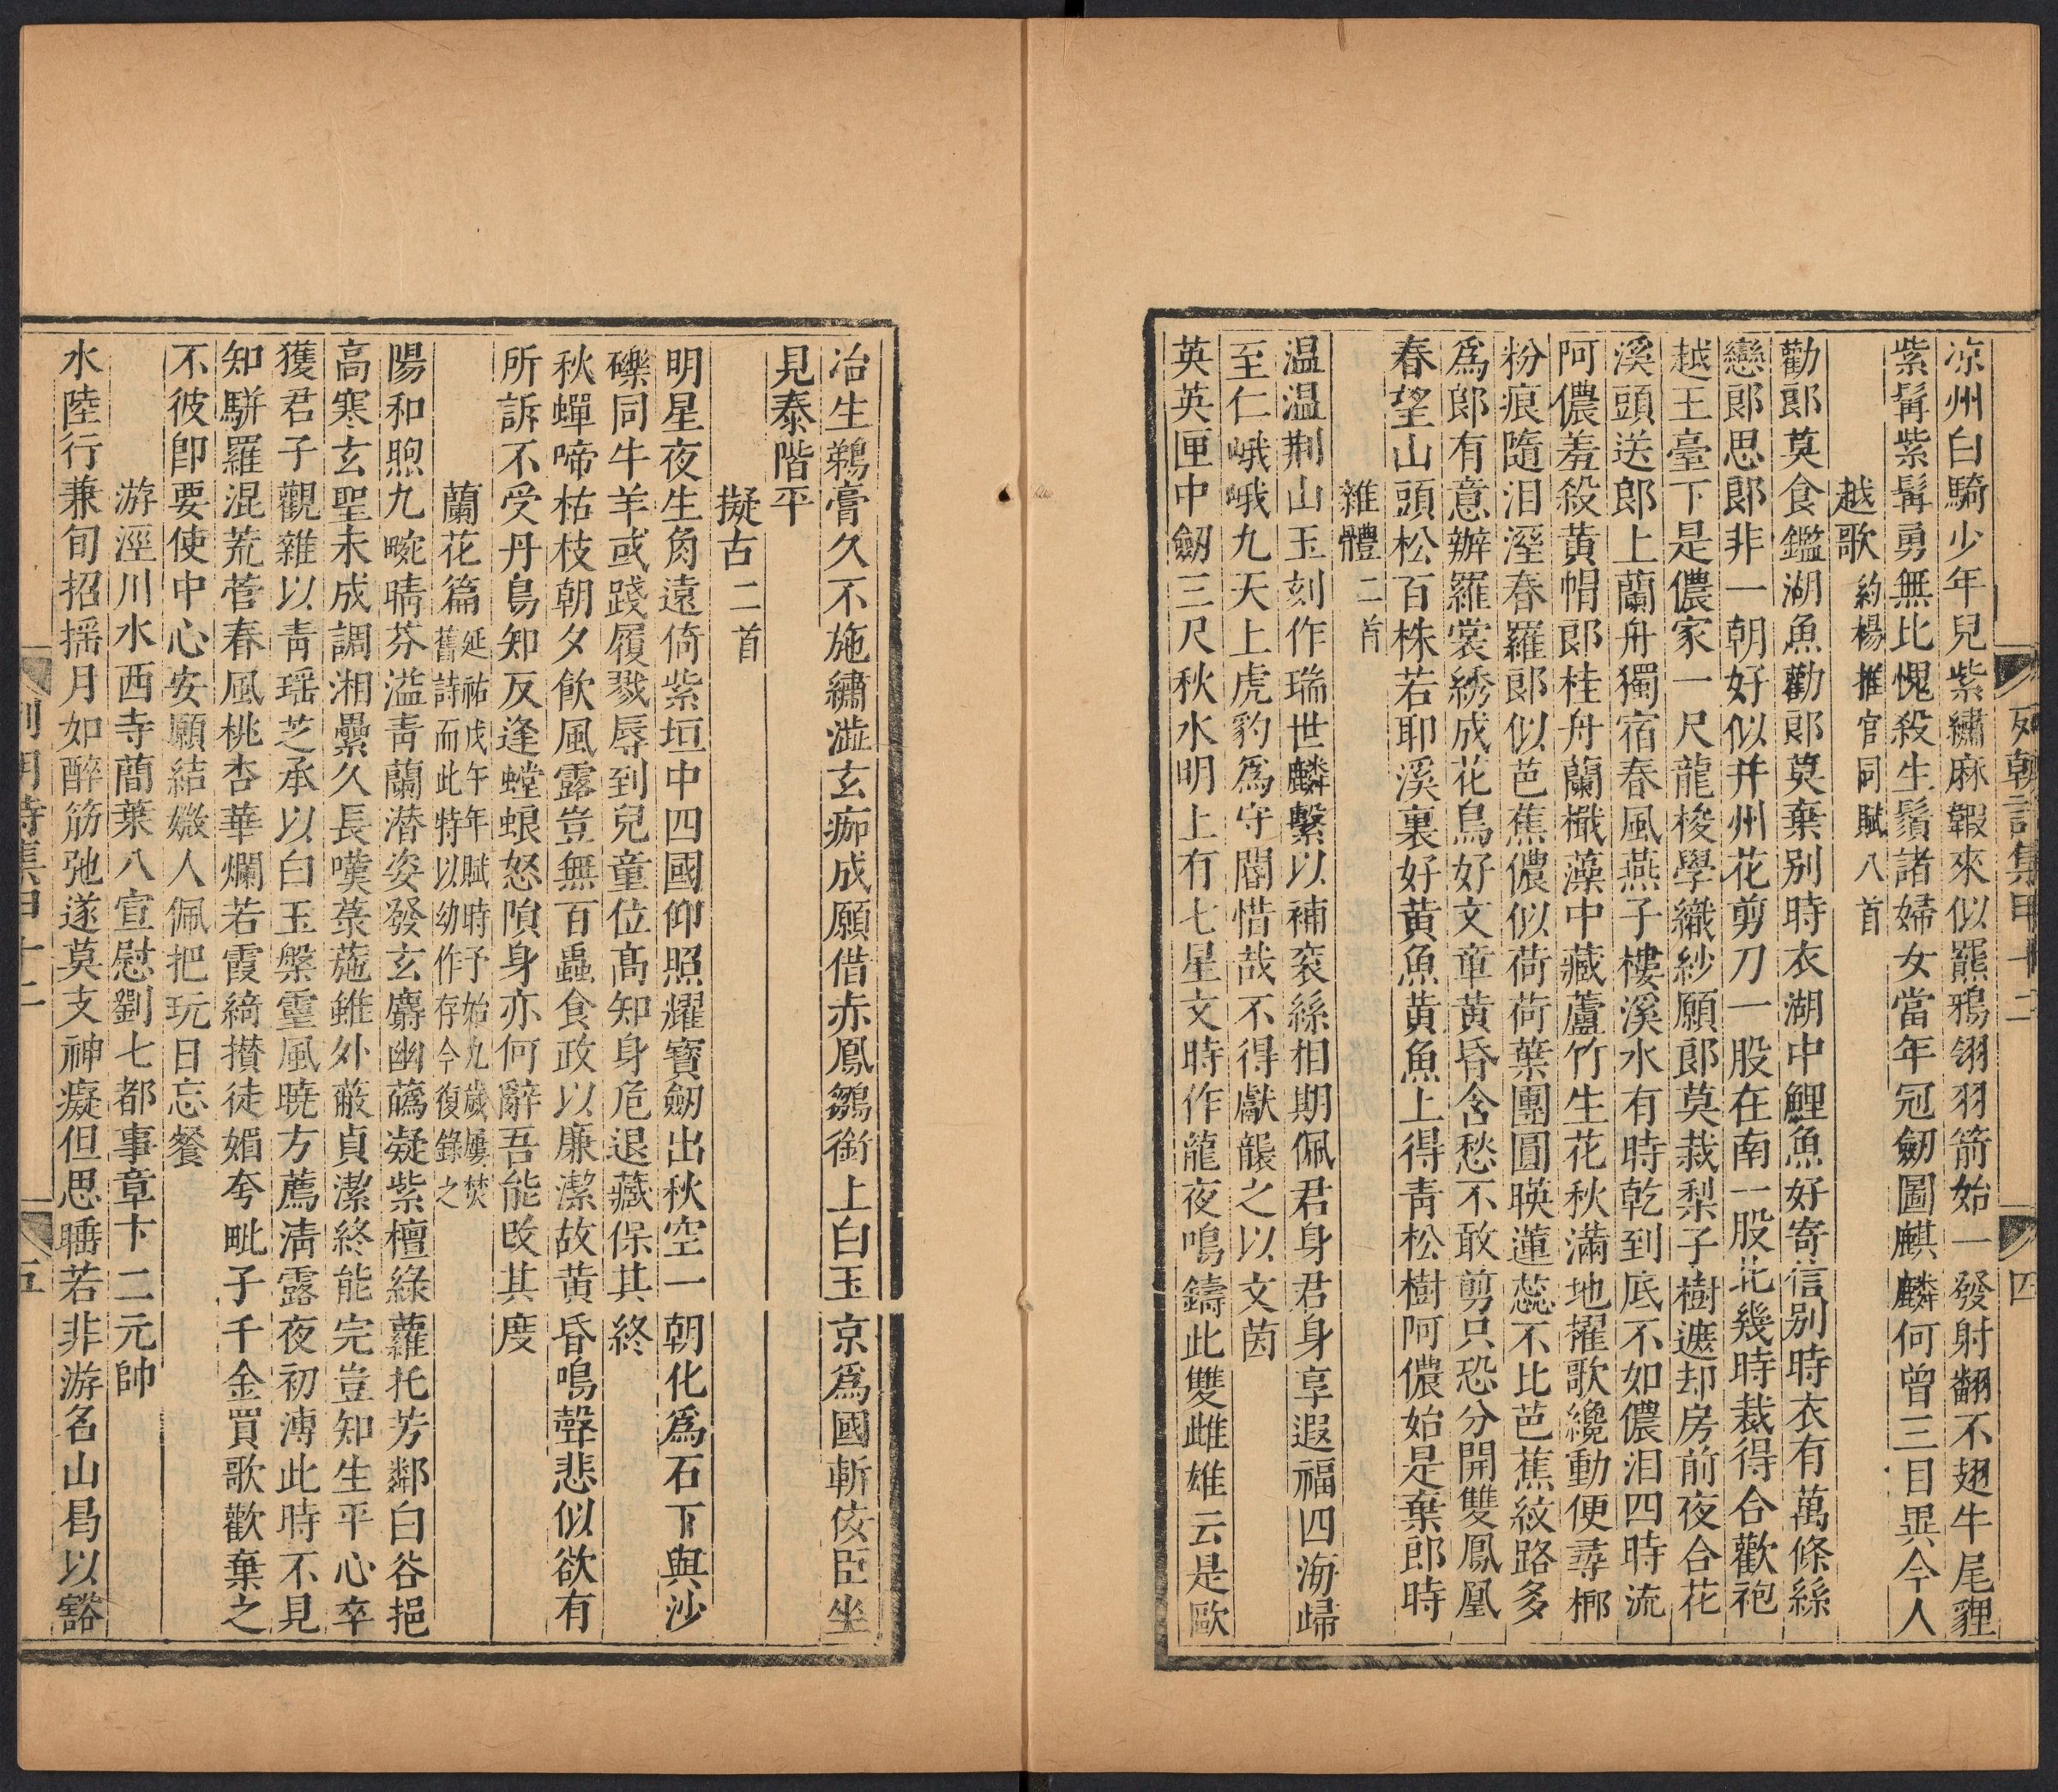 列朝詩集甲十二 四
涼州白騎少年兒紫繡麻䩡來似羆鴉翎羽箭始一發射翻不翅牛尾貍
紫髯紫髯勇無比愧殺生鬚諸婦女當年冠劒圖麒麟何曾三目異今人
越歌 約楊推官同賦八首
勸郎莫食鑑湖魚勸郎莫棄别時衣湖中鯉魚好寄信别時衣有萬條絲
戀郎思郎非一朝好似并州花剪刀一股在南一股北幾時裁得合歡袍
越王臺下是儂家一尺龍梭學織紗願郎莫栽梨子樹遮却房前夜合花
溪頭送郎上蘭舟獨宿春風燕子樓溪水有時乾到底不如儂泪四時流
阿儂羞殺黄帽郎桂舟蘭檝藻中藏蘆竹生花秋滿地擢歌纔動便尋榔
粉痕隨泪溼春羅郎似芭蕉儂似荷荷葉團圓暎蓮蕊不比芭蕉紋路多
爲郎有意辦羅裳綉成花鳥好文章黄昏含愁不敢剪只恐分開雙鳳凰
春望山頭松百株若耶溪裏好黄魚黄魚上得青松樹阿儂始是棄郎時
雜體 二首
温温荆山玉刻作瑞世麟繫以補衮絲相期佩君身君身享遐福四海歸
至仁峨峨九天上虎豹爲守閽惜哉不得獻韞之以文茵
英英匣中劒三尺秋水明上有七星文時作龍夜鳴鑄此雙雌雄云是歐
冶生鵜膏久不施繡澁玄痂成願借赤鳳鶵銜上白玉京爲國斬佞臣坐
見泰階平
擬古 二首
明星夜生角遠倚紫垣中四國仰照耀寶劒出秋空一朝化爲石下與沙
礫同牛羊或踐履戮辱到兒童位高知身危退藏保其終
秋蟬啼枯枝朝夕飲風露豈無百蟲食政以廉潔故黄昏鳴聲悲似欲有
所訴不受丹鳥知反逢螳蜋怒隕身亦何辭吾能改其度
蘭花篇 延祐戊午年賦時予始九歲屢焚
舊詩而此特以幼作存今復錄之
陽和煦九畹晴芬溢青蘭潛姿發玄麝幽蘤凝紫檀綠蘿托芳鄰白谷挹
高寒玄聖未成調湘纍久長嘆菉葹雖外蔽貞潔終能完豈知生平心卒
獲君子觀雜以青瑶芝承以白玉槃靈風曉方薦清露夜初溥此時不見
知騈羅混荒菅春風桃杏華爛若霞綺攢徒媚夸毗子千金買歌歡棄之
不彼卽要使中心安願結媺人佩把玩日忘餐
游涇川水西寺簡葉八宣慰劉七都事章卞二元帥
水陸行兼旬招摇月如醉筋弛遂莫支神癡但思睡若非游名山曷以豁
列朝詩集甲十二 五